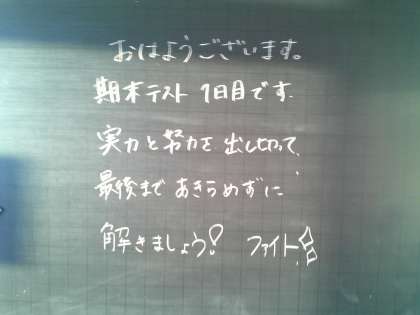 おはようございます。
期末テスト 1日目です.
実力と努力を 出し切って、
最後まで あきらめずに
解きましょう! ファイト!